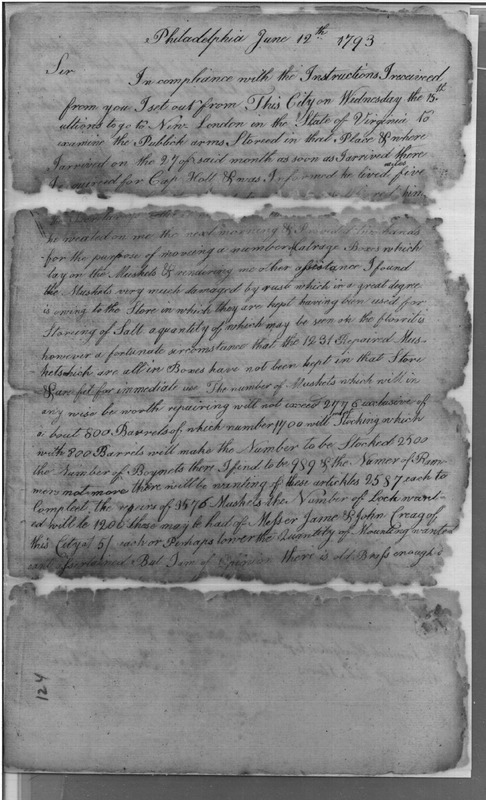 Philadelphia June 12th 1793
Sir
In compliance with the Instructions I receaved
from you I set out from This City on Wednesday the 15th
ultimo to go to New London in the State of Virginia to
examine the Publick arms Stored in that Place & where
I arrived on the 27 of said month as soon as I arrived there
inquired for Cap Holt & was Informed he lived five miles
him
he weated on me the next morning & hands
for the purpose of moveing a number Catrage Boxes which
lay on the Muskets & rendering me other assistance I found
the Muskets very much damaged by rust which in a great degree
is owing to the Store in which they are kept having been used for
Storeing of Salt a quantity of which may be seen on the floor it is
however a fortunate circumstance that the 1231 Repaired Mus-
kets which are all in Boxes have not been kept in that Store
& are fit for immediate use The number of Muskets which will in
any wise be worth repairing will not exceed 2776 exclusive of
a bout 800 Barrels of which number 1700 will Stocking which
with 800 Barrels will make the Number to be Stocked 2500
the Number of Boynets there I find to be 989 & the Numer of Ram-
mers not more there will be wanting of these artickles 2587 each to
Compleat the repairs of 3576 Muskets the Number of Locks want-
ed will to 1206 those may be had of Messer Jame & John Crag of
this City at 5/ each or Perhaps lower the Quantity of Mounting wanted
cant But I am of Opinion there is old Brass enough
124